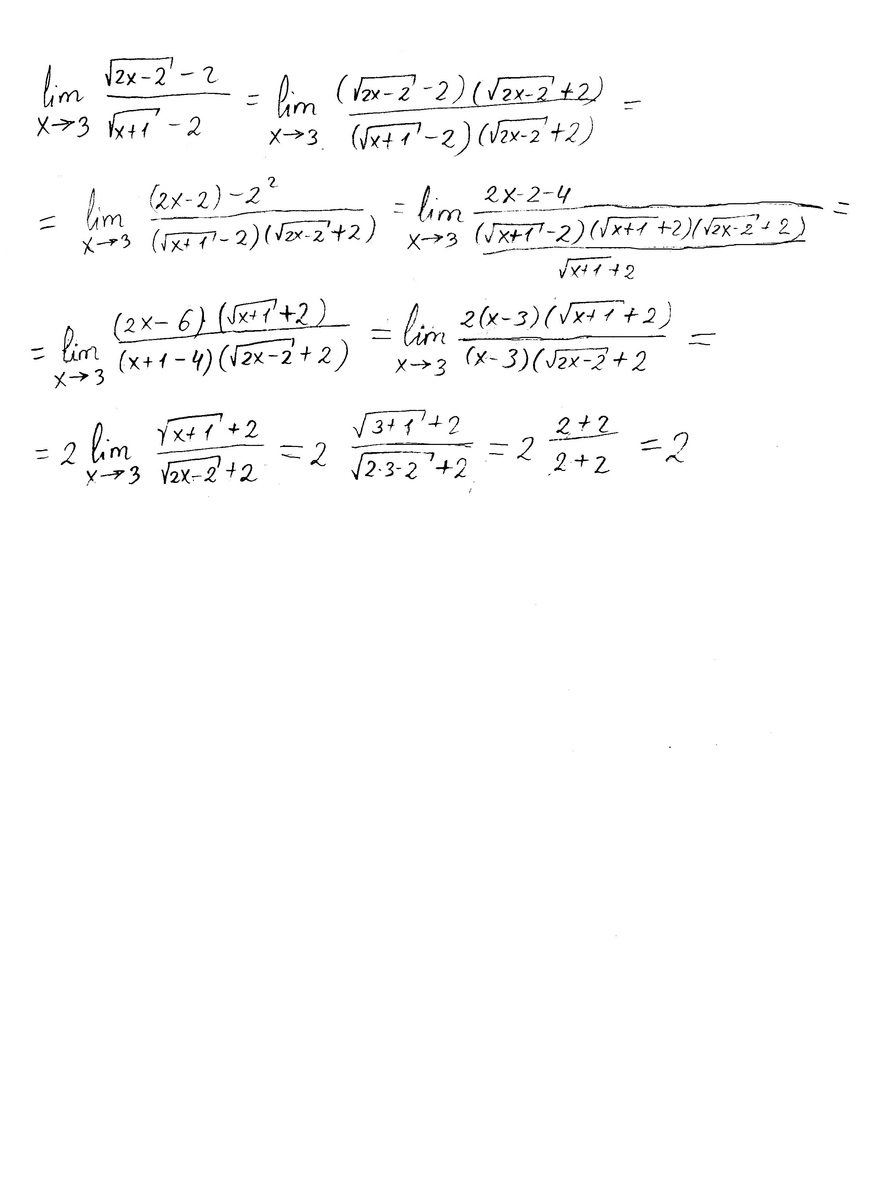 lim_{x→3} (√(2x-2) - 2)/(√(x+1) - 2) = lim_{x→3} ((√(2x-2) - 2)(√(2x-2) + 2))/((√(x+1) - 2)(√(2x-2) + 2)) =
= lim_{x→3} ((2x-2) - 2²)/((√(x+1) - 2)(√(2x-2) + 2)) = lim_{x→3} (2x-2-4)/(((√(x+1) - 2)(√(x+1) + 2)(√(2x-2) + 2))/(√(x+1) + 2)) =
= lim_{x→3} ((2x-6)(√(x+1) + 2))/((x+1-4)(√(2x-2) + 2)) = lim_{x→3} (2(x-3)(√(x+1) + 2))/((x-3)(√(2x-2) + 2) =
= 2 lim_{x→3} (√(x+1) + 2)/(√(2x-2) + 2) = 2 (√(3+1) + 2)/(√(2·3-2) + 2) = 2 (2+2)/(2+2) = 2